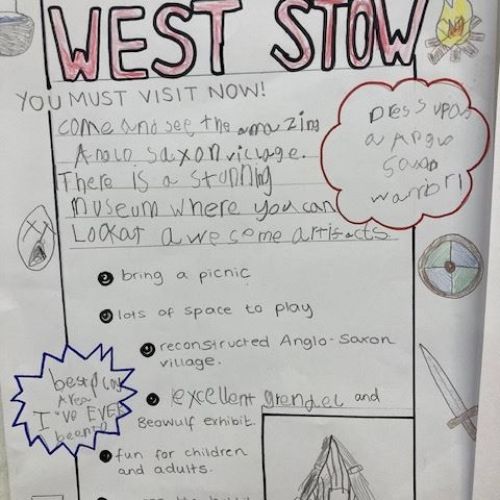 WEST STOW
YOU MUST VISIT NOW!
come and see the amazing
Anglo Saxon village.
There is a stunning
museum where you can
Look at awesome artifacts
Dress up as
a Anglo
Saxon
warrori
bring a picnic
lots of space to play
reconstructed Anglo-Saxon
village.
excellent grendel and
Beowulf exhibit.
fun for children
and adults.
best play
Area
I've EVER
been to